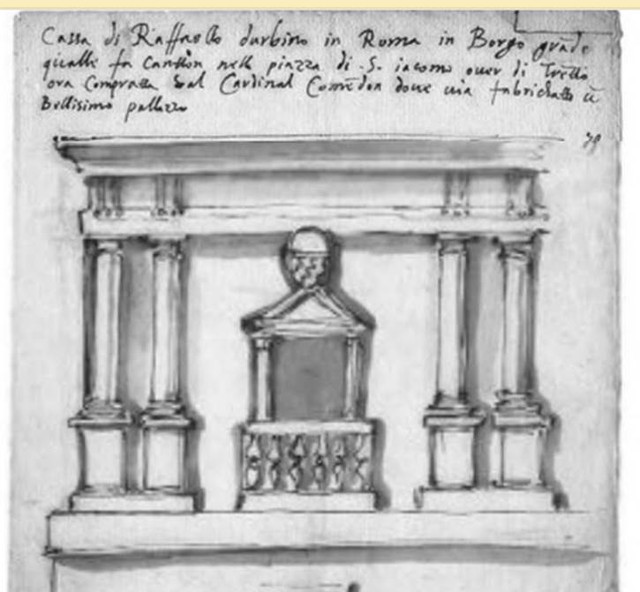 Cassa di Raffaello durbino in Roma in Borgo grãde
qualle fa canton nella piazza di .S. iacomo over di
ora Compratta dal Cardinal Comẽdon dove via fabrichatto ũ
Bellisimo pallazzo